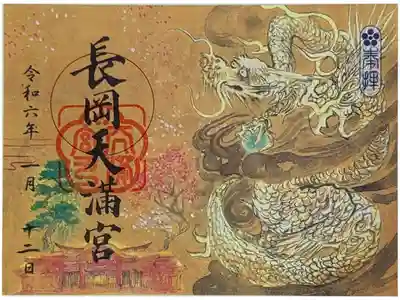 奉拝
長岡天満宮
令和六年 一月 十二日